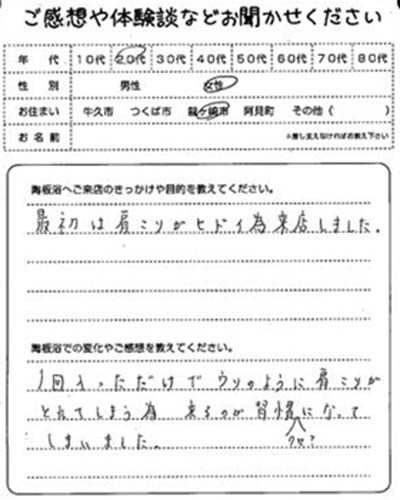 ご感想や体験談などお聞かせください
年代 10代 20代 30代 40代 50代 60代 70代 80代
性別 男性 女性
お住まい 牛久市 つくば市 龍ヶ崎市 阿見町 その他( )
お名前 ※差し支えなければお教え下さい
陶板浴へご来店のきっかけや目的を教えてください。
最初は肩こりがヒドイ為来店しました。
陶板浴での変化やご感想を教えてください。
1回入っただけでウソのように肩こりが
とれてしまう為 来るのが習慣になって
クセ?
しまいました。